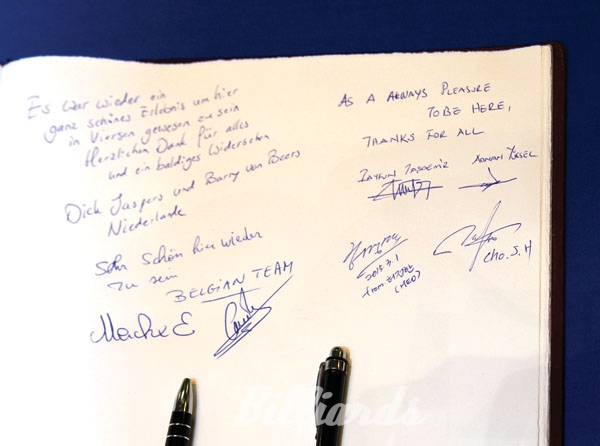 Es war wieder ein
ganz schönes Erlebnis um hier
in Viersen gewesen zu sein
Herzlichen Dank für alles
und ein baldiges Widersehen
Dick Jaspers und Barry van Beers
Niederlande
Sehr schön hier wieder
zu sein
BELGIAN TEAM
AS A ALWAYS PLEASURE
TO BE HERE,
THANKS FOR ALL
TAYFUN TASDEMIR ADNAN YUKSEL
2015.3.1
from 허정한
(HEO)
CHO. S. H
Billiards